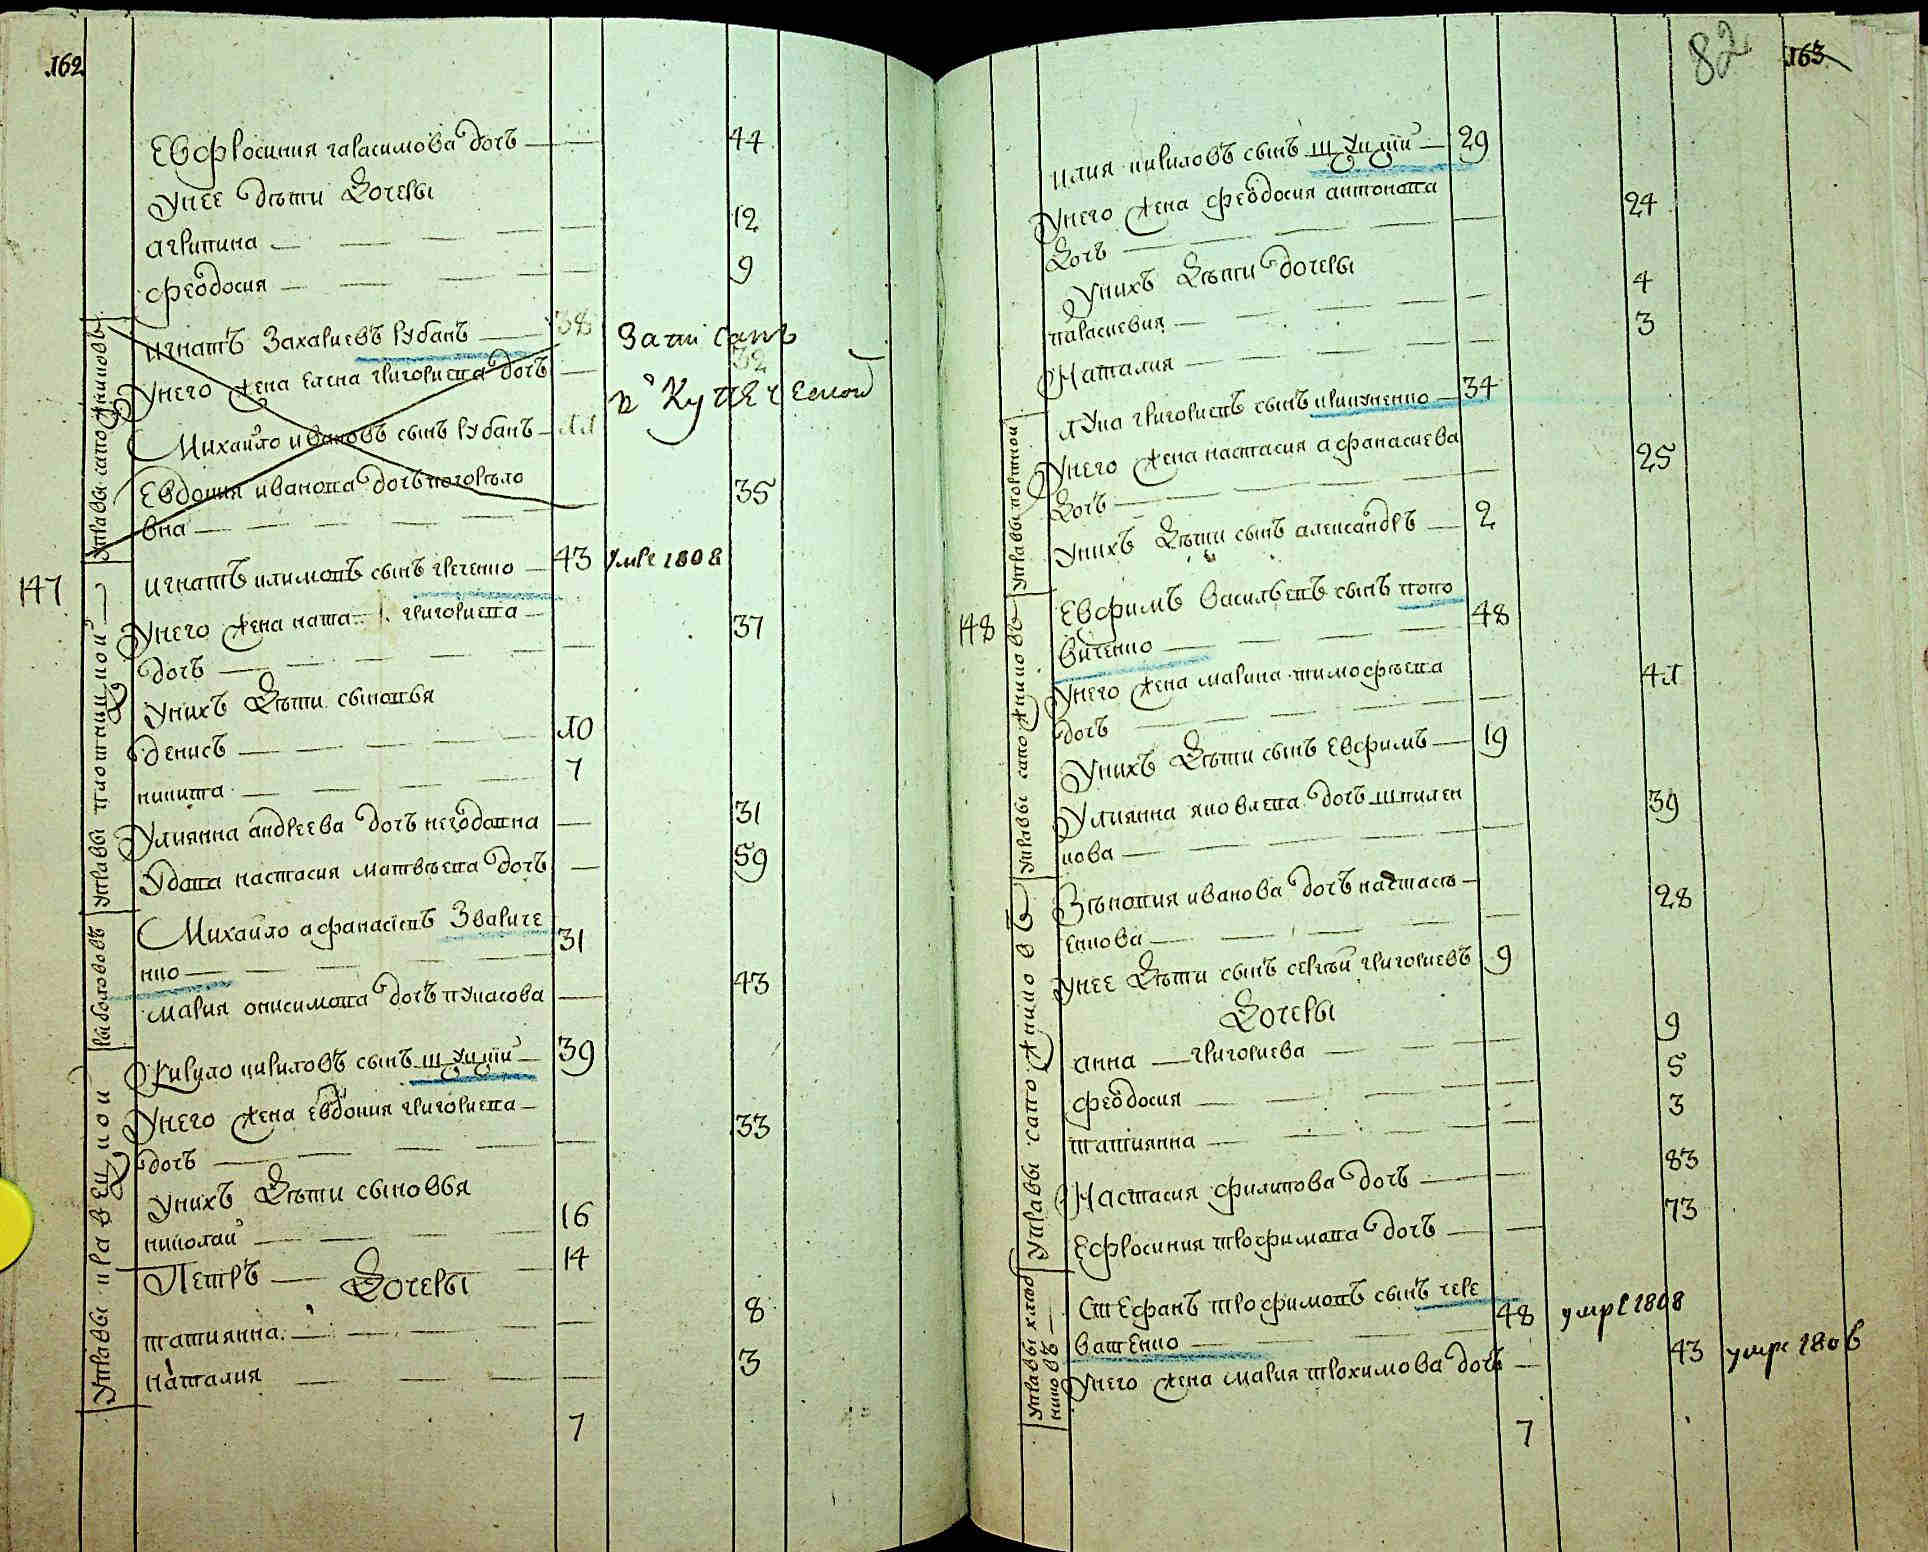 162
Евфросиния гарасимова дочъ 44
Унее дѣти Дочеры
агрипина 12
феодосия 9
Управы сапожниковъ
игнатъ Захариевъ рубанъ 38
Записанъ
Унего жена елена григориева дочъ 32
в Купеческой
Михайло ивановъ сынъ рубанъ 11
Евдокия иванова дочь
вна 35
147
игнатъ климовъ сынъ греченко 43 умре 1808
Управы плотницкой
Унего жена ната григориева 37
дочъ
Унихъ Дѣти сыновья
денисъ 10
никита 7
Улиянна андреева дочъ негодовна 31
Удова настасия матвѣева дочъ 59
рыболововъ
Михайло афанасіевъ Звариче 31
нко
мария онисимова дочъ пукасова 43
Управы кравецкой
Кирило кириловъ сынъ шуцкій 39
Унего жена евдокия григориева 33
дочъ
Унихъ Дѣти сыновья
николай 16
Петръ 14
Дочеры
татиянна 8
наталия 3
7
82
163
илия кириловъ сынъ шуцкій 29
Унего жена феодосия антонова 24
Дочъ
Унихъ Дѣти дочеры
параскевия 4
Наталия 3
Управы портной
лука григориевъ сынъ 34
Унего жена настасия афанасиева 25
Дочъ
Унихъ Дѣти сынъ александръ 2
148
Управы сапожниковъ
Евфимъ васильевъ сынъ попо
виченко 48
Унего жена марина тимофѣева 41
дочъ
Унихъ Дѣти сынъ евфимъ 19
Улиянна яковлева дочъ шпилен 39
кова
Управы сапожниковъ
Зѣновия иванова дочъ настасѣ 28
енкова
Унее Дѣти сынъ сергѣй григориевъ 9
Дочеры
анна григориева 9
феодосия 5
татиянна 3
Настасия филипова дочъ 83
Ефросиния трофимова дочъ 73
никовъ
Стефанъ трофимовъ сынъ чере
ватенко 48 умре 1808
Унего жена мария трохимова дочъ 43 умре 1806
7